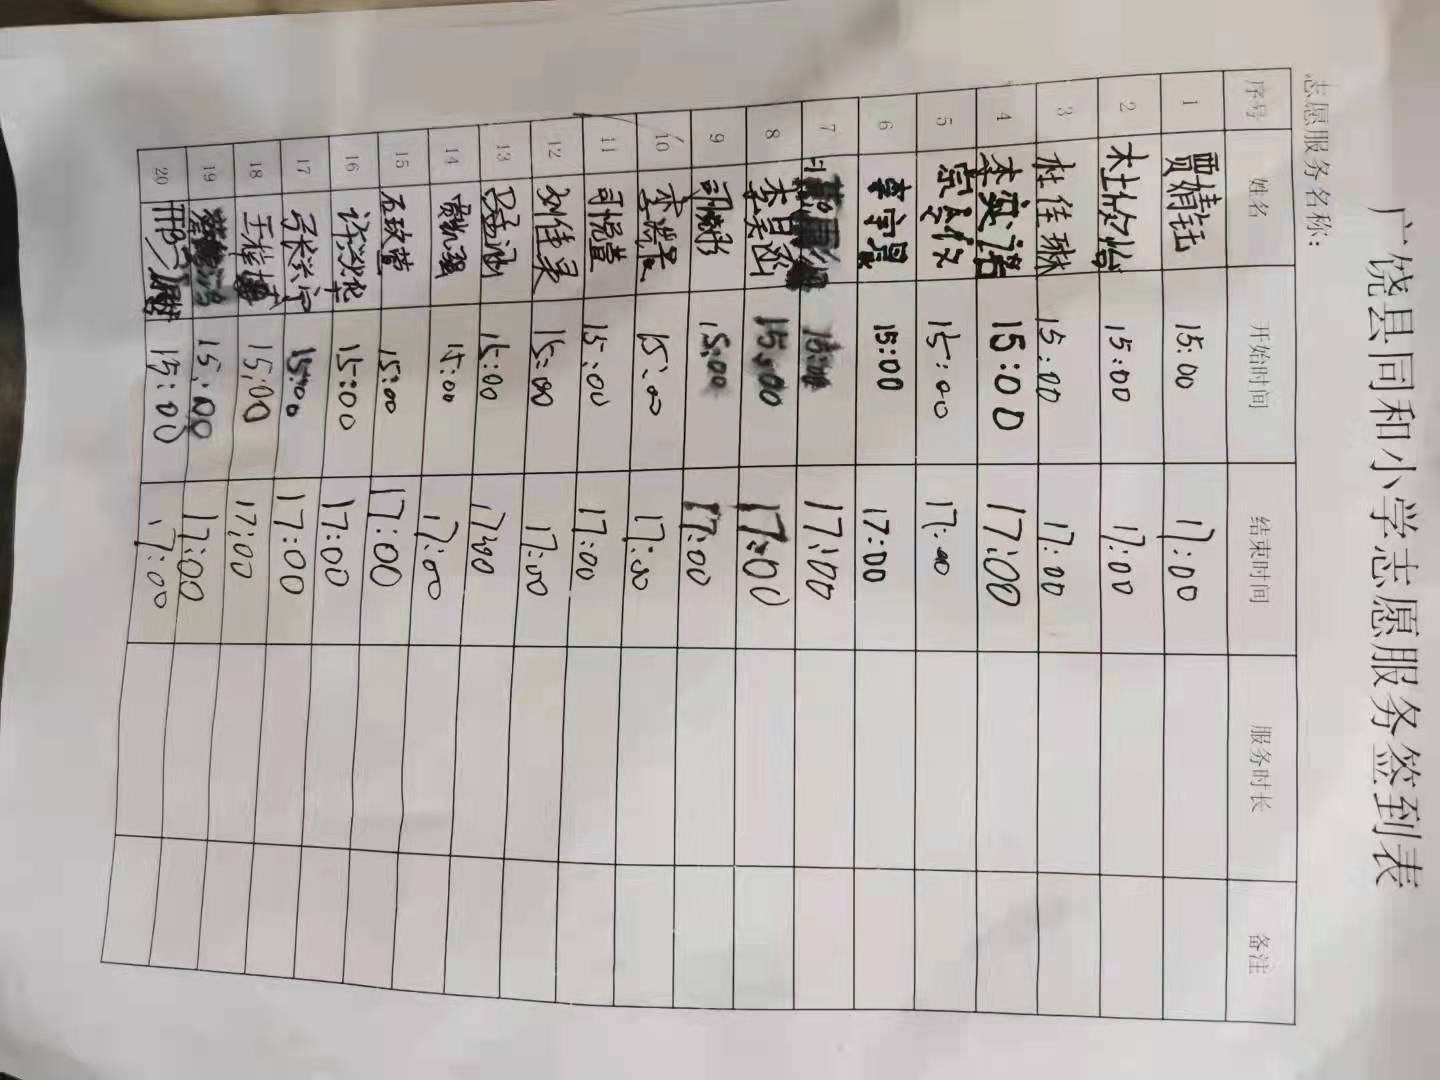 广饶县同和小学志愿服务签到表
志愿服务名称：
序号 姓名 开始时间 结束时间 服务时长 备注
1 贾婧钰 15:00 17:00
2 杜欣怡 15:00 17:00
3 杜佳琳 15:00 17:00
4 李奕诺 15:00 17:00
5 15:00 17:00
6 李宇晨 15:00 17:00
7 15:00 17:00
8 李昊函 15:00 17:00
9 15:00 17:00
10 15:00 17:00
11 司悦萱 15:00 17:00
12 刘佳昊 15:00 17:00
13 15:00 17:00
14 15:00 17:00
15 15:00 17:00
16 15:00 17:00
17 15:00 17:00
18 15:00 17:00
19 15:00 17:00
20 15:00 17:00